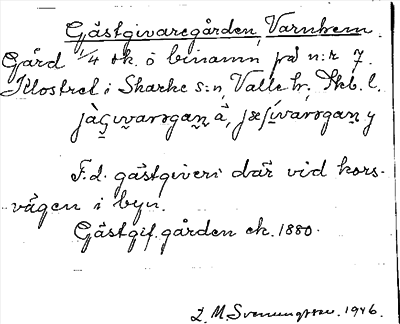 Gästgivaregården, Varnhem.
Gård 1/4 sk. ö binamn på n:r 7.
Klostret i Skarke s:n, Valle hr. Skb. l.
F.d. gästgiveri där vid kors-
vägen i byn.
Gästgif.gården ek. 1880.
L. M. Svenungsson. 1946.